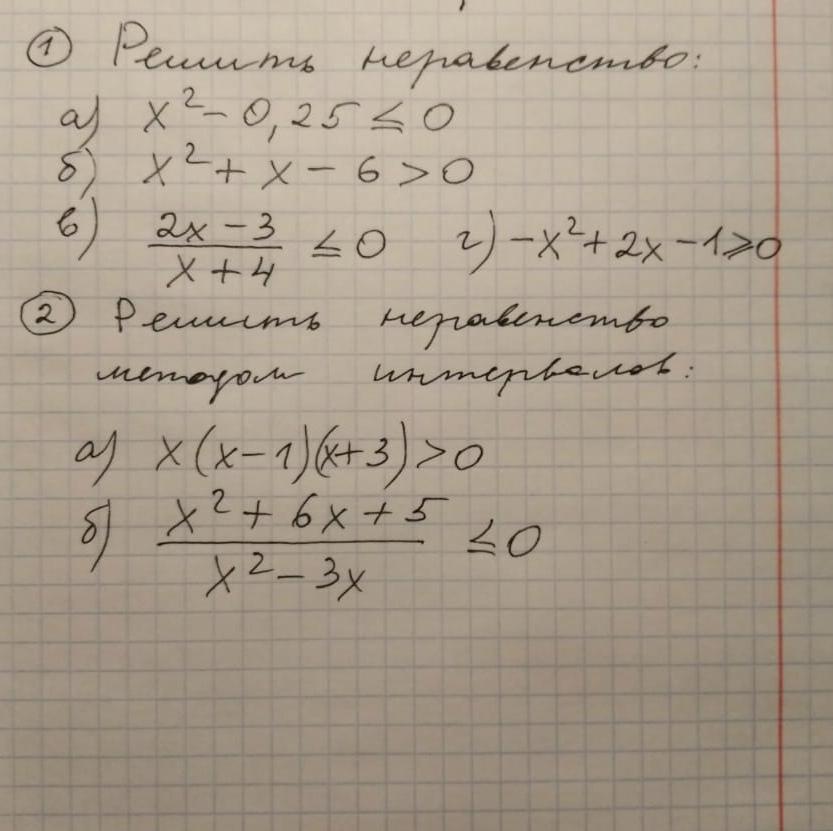 ① Решить неравенство:
а) x² - 0,25 ≤ 0
б) x² + x - 6 > 0
в) (2x - 3)/(x + 4) ≤ 0 г) -x² + 2x - 1 ≥ 0
② Решить неравенство
методом интервалов:
а) x(x - 1)(x + 3) > 0
б) (x² + 6x + 5)/(x² - 3x) ≤ 0